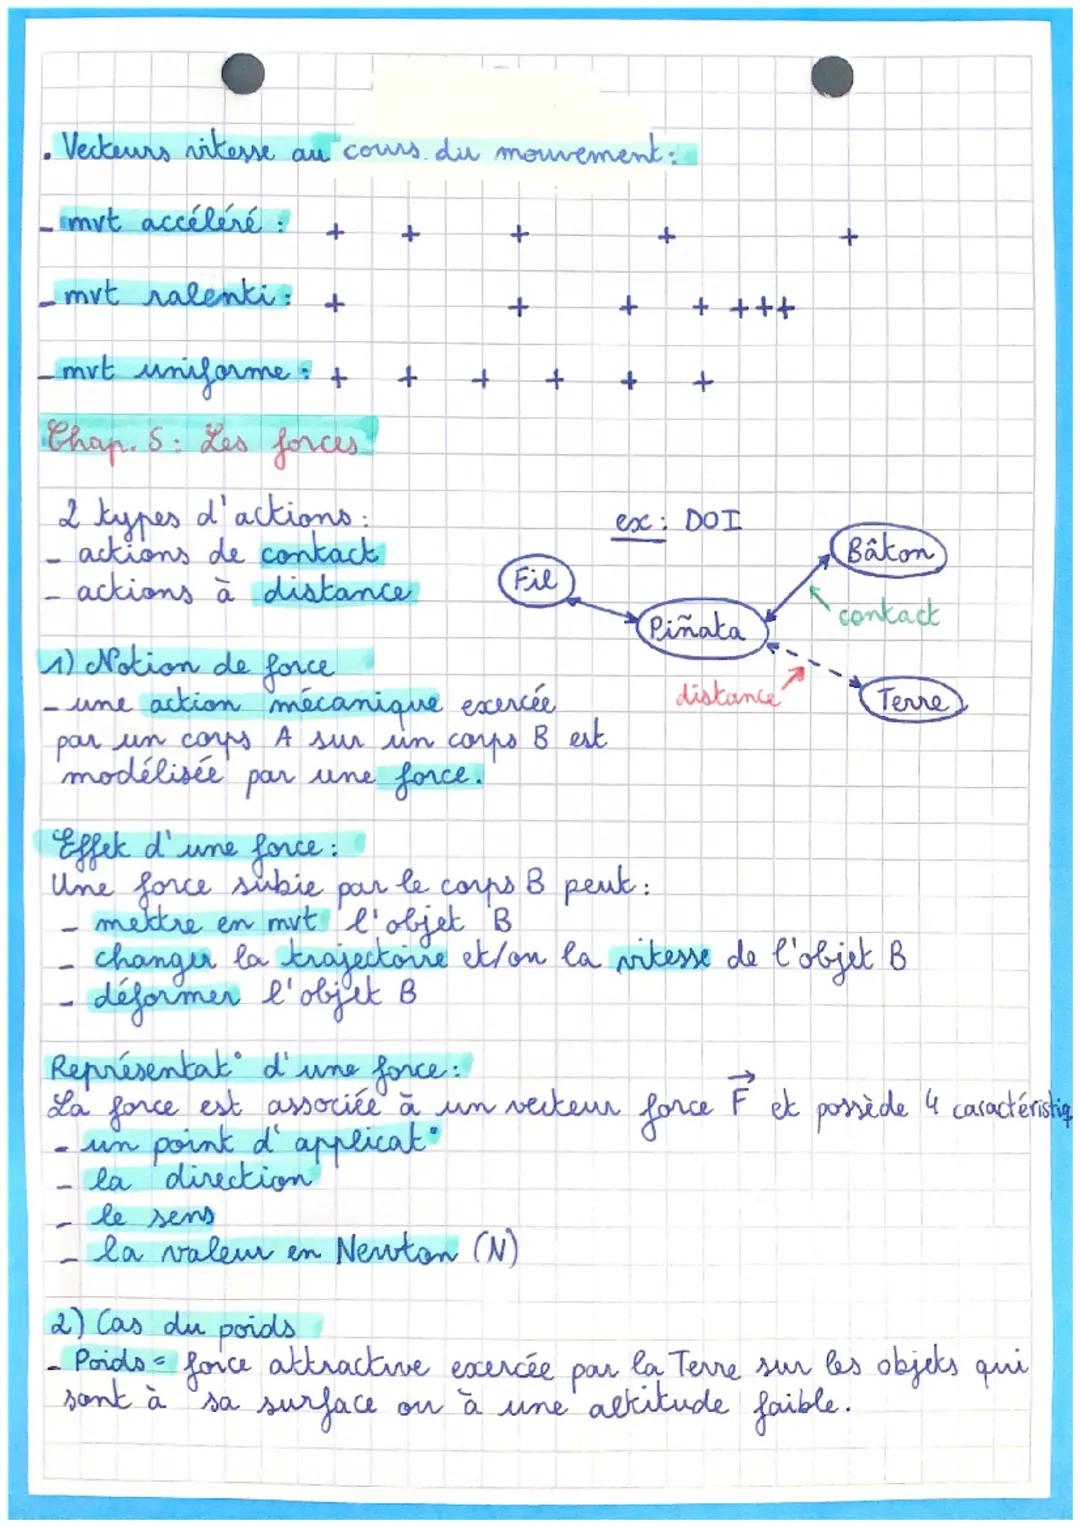 . Vecteurs vitesse au cours du mouvement :
- mvt accéléré : + + + + +
- mvt ralenti : + + + + +++
- mvt uniforme : + + + + + +
Chap. 5 : Les forces
2 types d'actions :
- actions de contact
- actions à distance
ex : DOI
Bâton
Fil
contact
Piñata
distance
Terre
1) Notion de force
- une action mécanique exercée
par un corps A sur un corps B est
modélisée par une force.
Effet d'une force :
Une force subie par le corps B peut :
- mettre en mvt l'objet B
- changer la trajectoire et/ou la vitesse de l'objet B
- déformer l'objet B
Représentat° d'une force :
La force est associée à un vecteur force F⃗ et possède 4 caractéristiq
- un point d'applicat°
- la direction
- le sens
- la valeur en Newton (N)
2) Cas du poids
- Poids = force attractive exercée par la Terre sur les objets qui
sont à sa surface ou à une altitude faible.